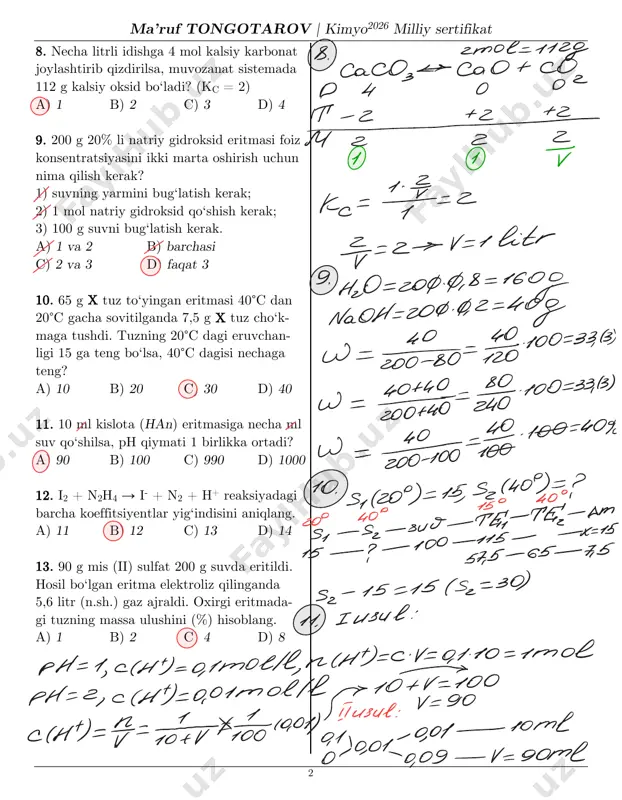 Ma'ruf TONGOTAROV | Kimyo²⁰²⁶ Milliy sertifikat
8. Necha litrli idishga 4 mol kalsiy karbonat
joylashtirib qizdirilsa, muvozanat sistemada
112 g kalsiy oksid bo'ladi? (K_C = 2)
A) 1 B) 2 C) 3 D) 4
9. 200 g 20% li natriy gidroksid eritmasi foiz
konsentratsiyasini ikki marta oshirish uchun
nima qilish kerak?
1) suvning yarmini bug'latish kerak;
2) 1 mol natriy gidroksid qo'shish kerak;
3) 100 g suvni bug'latish kerak.
A) 1 va 2 B) barchasi
C) 2 va 3 D) faqat 3
10. 65 g X tuz to'yingan eritmasi 40°C dan
20°C gacha sovitilganda 7,5 g X tuz cho'k-
maga tushdi. Tuzning 20°C dagi eruvchan-
ligi 15 ga teng bo'lsa, 40°C dagisi nechaga
teng?
A) 10 B) 20 C) 30 D) 40
11. 10 ml kislota (HAn) eritmasiga necha ml
suv qo'shilsa, pH qiymati 1 birlikka ortadi?
A) 90 B) 100 C) 990 D) 1000
12. I₂ + N₂H₄ → I⁻ + N₂ + H⁺ reaksiyadagi
barcha koeffitsiyentlar yig'indisini aniqlang.
A) 11 B) 12 C) 13 D) 14
13. 90 g mis (II) sulfat 200 g suvda eritildi.
Hosil bo'lgan eritma elektroliz qilinganda
5,6 litr (n.sh.) gaz ajraldi. Oxirgi eritmada-
gi tuzning massa ulushini (%) hisoblang.
A) 1 B) 2 C) 4 D) 8
8. 2mol=112g
CaCO₃ ↔ CaO + CO₂
D 4 0 0
T -2 +2 +2
M 2 2 2/V
1 1
K_C = 1·2/V / 1 = 2
2/V = 2 → V=1 litr
9. H₂O=200·0,8=160g
NaOH=200·0,2=40g
ω = 40/(200-80) = 40/120 · 100=33,(3)
ω = (40+40)/(200+40) = 80/240 · 100=33,(3)
ω = 40/(200-100) = 40/100 · 100=40%
10. S₁(20°)=15, S₂(40°)=?
20° 40° 15° 40°
S₁ — S₂ — suv — TE₁ — TE₂ — Δm
15 — ? — 100 — 115 — — x=15
57,5 — 65 — 7,5
S₂ - 15 = 15 (S₂=30)
11. I usul:
pH=1, C(H⁺)=0,1mol/l, n(H⁺)=C·V=0,1·10=1mol
pH=2, C(H⁺)=0,01mol/l
10+V=100
V=90
C(H⁺)= n/V = 1/(10+V) = 1/100 (0,01)
II usul:
0,1 0,01 — 10ml
0,01
0 0,09 — V=90ml
2
Faylhub.uz
Faylhub.uz
Faylhub.uz
uz
uz
uz